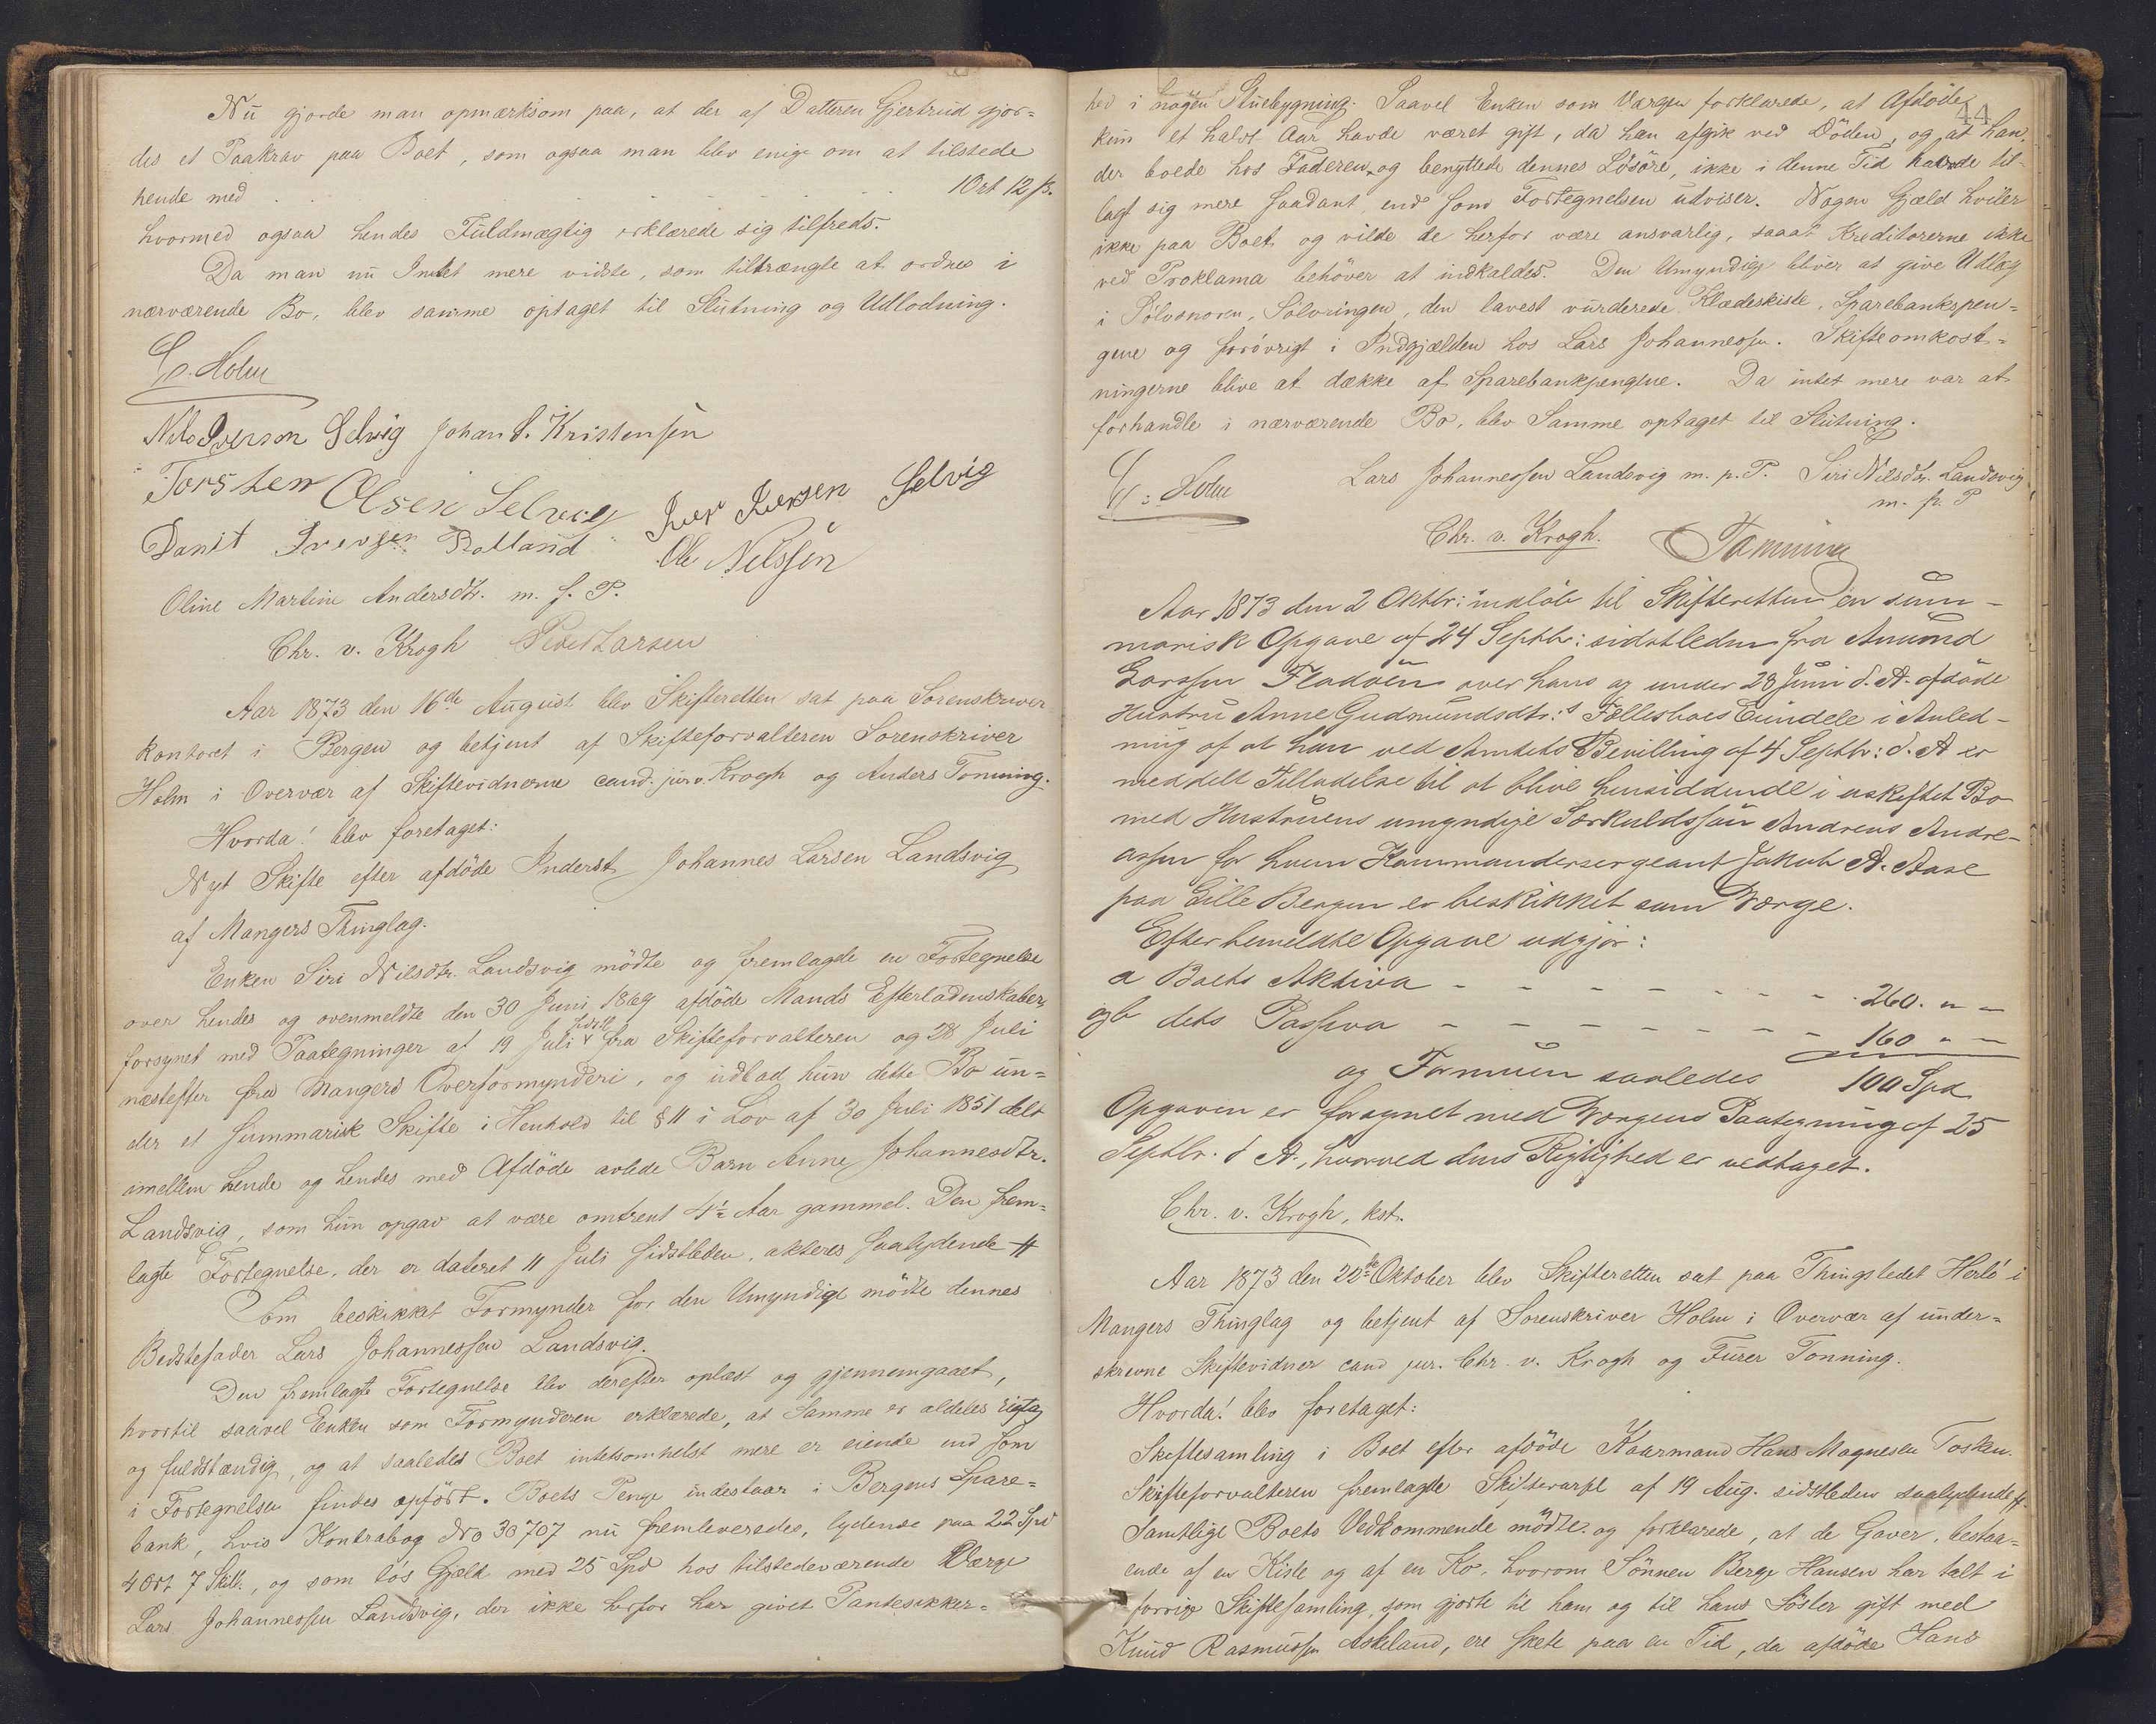 Nu gjorde man opmærksom paa, at der af Datteren Gjertrud gjor-
des et Paakrav paa Boet, som ogsaa man blev enige om at tilstede
hende med . . . . . 1 Ort 12 ß.
hvormed ogsaa hendes Fuldmægtig erklærede sig tilfreds.
Da man nu Intet mere vidste, som tiltrængte at ordnes i
nærværende Bo, blev samme optaget til Slutning og Udlodning.
Holm
Nils Iverson Selvig Johan S. Kristensen
Torsten Olsen Selvig Iver Iversen Selvig
Danil Iversen Ole Nilssen
Oline Martine Andersdtr. m. f. P.
Chr. v. Krogh Peder Larsen
Aar 1873 den 16de August blev Skifteretten sat paa Sorenskriver
kontoret i Bergen og betjent af Skifteforvalteren Sorenskriver
Holm i Overvær af Skiftevidnerne cand. jur. v. Krogh og Anders Tonning.
Hvorda! blev foretaget:
Nyt Skifte efter afdøde Inderst Johannes Larsen Landsvig
af Mangers Thinglag.
Enken Siri Nilsdtr. Landsvig mødte og fremlagde en Fortegnelse
over hendes og ovenmeldte den 30 Juni 1869 afdøde Mands Efterladenskaber,
forsynet med Paategninger af 19 Juli sidstl. fra Skifteforvalteren og 28 Juli
næstefter fra Mangers Overformynderi, og udbad hun dette Bo un-
der et summarisk Skifte i Henhold til § 11 i Lov af 30 Juli 1851 delt
imellem hende og hendes med Afdøde avlede Barn Anne Johannesdtr.
Landsvig, som hun opgav at være omtrent 4½ Aar gammel. Den frem-
lagte Fortegnelse, der er dateret 11 Juli sidstleden, akteres saalydende #
Som beskikket Formynder for den Umyndige mødte dennes
Bedstefader Lars Johannessen Landsvig.
Den fremlagte Fortegnelse blev derefter oplæst og gjennemgaaet,
hvortil saavel Enken som Formynderen erklærede, at Samme er aldeles rigtig
og fuldstændig, og at saaledes Boet intetsomhelst mere er eiende end som
i Fortegnelsen findes opført. Boets Penge indestaar i Bergens Spare-
bank, hvis Kontrabog No 30707 nu fremleveredes, lydende paa 22 Spd
4 Ort 7 Skill., og som løs Gjeld med 25 Spd hos tilstedeværende Værge
Lars Johannessen Landsvig, der ikke herfor har givet Pantesikker-
44
hed i nogen Stuebygning. Saavel Enken som Værgen forklarede, at Afdøde
kun et halvt Aar havde været gift, da han afgik ved Døden, og at han,
der boede hos Faderen og benyttede dennes Løsøre, ikke i denne Tid havde til-
lagt sig mere saadant end som Fortegnelsen udviser. Nogen Gjæld hviler
ikke paa Boet og vilde de herfor være ansvarlig, saaat Kreditorerne ikke
ved Proklama behøver at indkaldes. Den Umyndige bliver at give Udlæg
i Sølvsnoren, Sølvringen, den lavest vurderede Klædeskiste, Sparebankspen-
gene og forøvrigt i Indgjælden hos Lars Johannessen. Skifteomkost-
ningerne blive at dække af Sparebankpengene. Da intet mere var at
forhandle i nærværende Bo, blev Samme optaget til Slutning.
Holm Lars Johannessen Landsvig m. p. P. Siri Nilsdtr. Landsvig
m. p. P
Chr. v. Krogh. Tonning
Aar 1873 den 2 Oktbr: indløb til Skifteretten en sum-
marisk Opgave af 24 Septbr: sidstleden fra Amund
Larssen Fladøen over hans og under 28 Juni d. A. afdøde
Hustru Anne Gudmundsdtr:s Fællesboes Eiendele i Anled-
ning af at han ved Amtets Bevilling af 4 Septbr: d. A er
meddelt Tilladelse til at blive hensiddende i uskiftet Bo
med Hustruens umyndige Særkuldssøn Andreas Andre-
assen for hvem Kommandersergeant Jakob A. Aase
paa Lille Bergen er beskikket som Værge.
Efter bemeldte Opgave udgjør:
a Boets Aktiva - - - - - - - 260. " -
og b dets Passiva - - - - - - - 160 " -
og Formuen saaledes 100 Spd
Opgaven er forsynet med Værgens Paategning af 25
Septbr. d A., hvorved dens Rigtighed er vedtaget.
Chr. v. Krogh, kst.
Aar 1873 den 22de Oktober blev Skifteretten sat paa Thingstedet Herlø i
Mangers Thinglag og betjent af Sorenskriver Holm i Overvær af under-
skrevne Skiftevidner cand jur. Chr. v. Krogh og Furer Tonning.
Hvorda! blev foretaget:
Skiftesamling i Boet efter afdøde Kaarmand Hans Magnesen Tosken.
Skifteforvalteren fremlagde Skiftevarsel af 19 Aug. sidstleden saalydende #.
Samtlige Boets Vedkommende mødte og forklarede, at de Gaver, bestaa-
ende af en Kiste og af en Ko, hvorom Sønnen Berge Hansen har talt i
forrige Skiftesamling som gjorte til ham og til hans Søster gift med
Knud Rasmussen Askeland, ere skete paa en Tid, da afdøde Hans